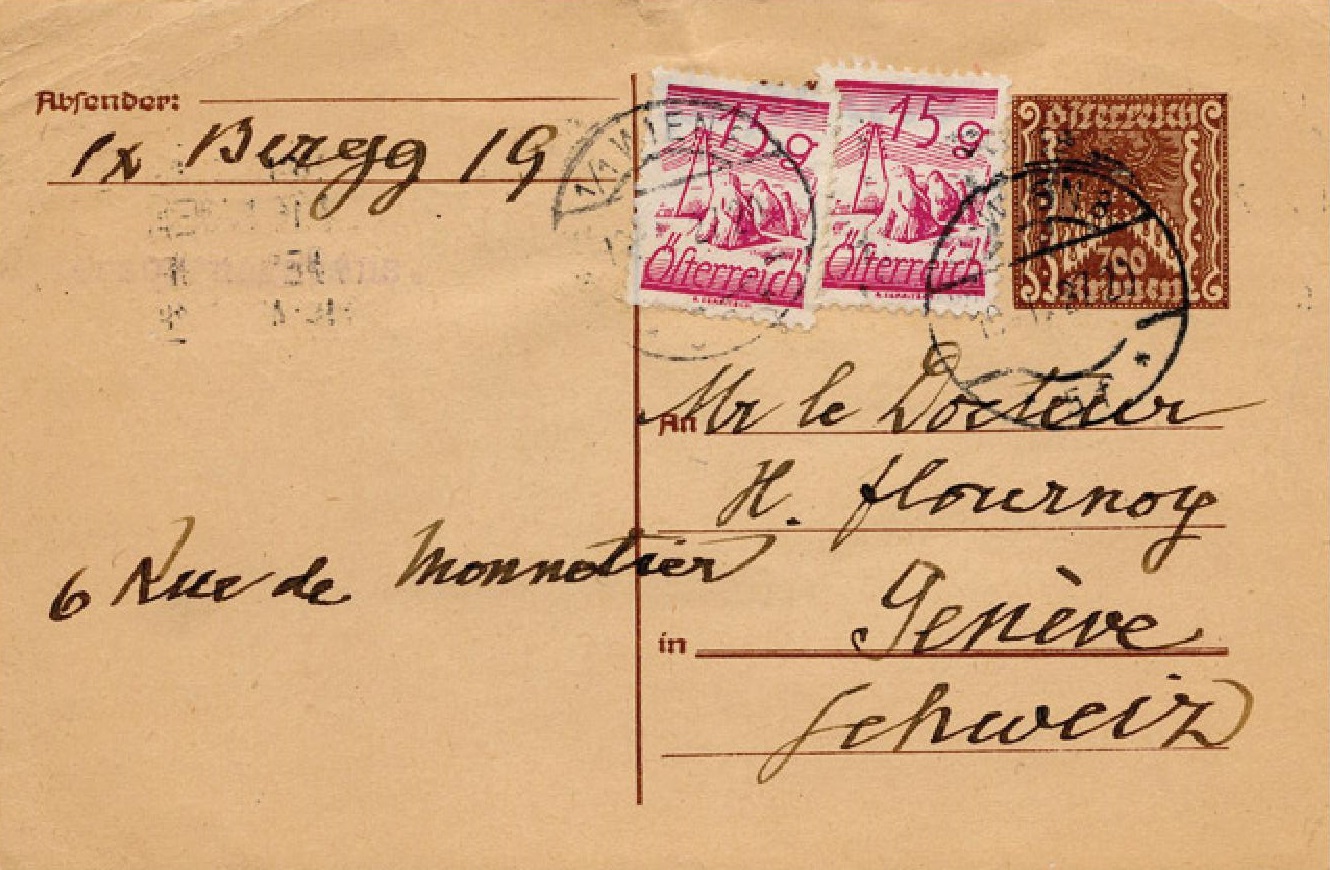 Absender:
IX Bergg 19
15 g
Österreich
15 g
Österreich
Österreich
700
Kronen
1/1 WIEN
WIEN
An Mr le Docteur
H. flournoy
6 Rue de Monnetier
in Genève
Schweiz